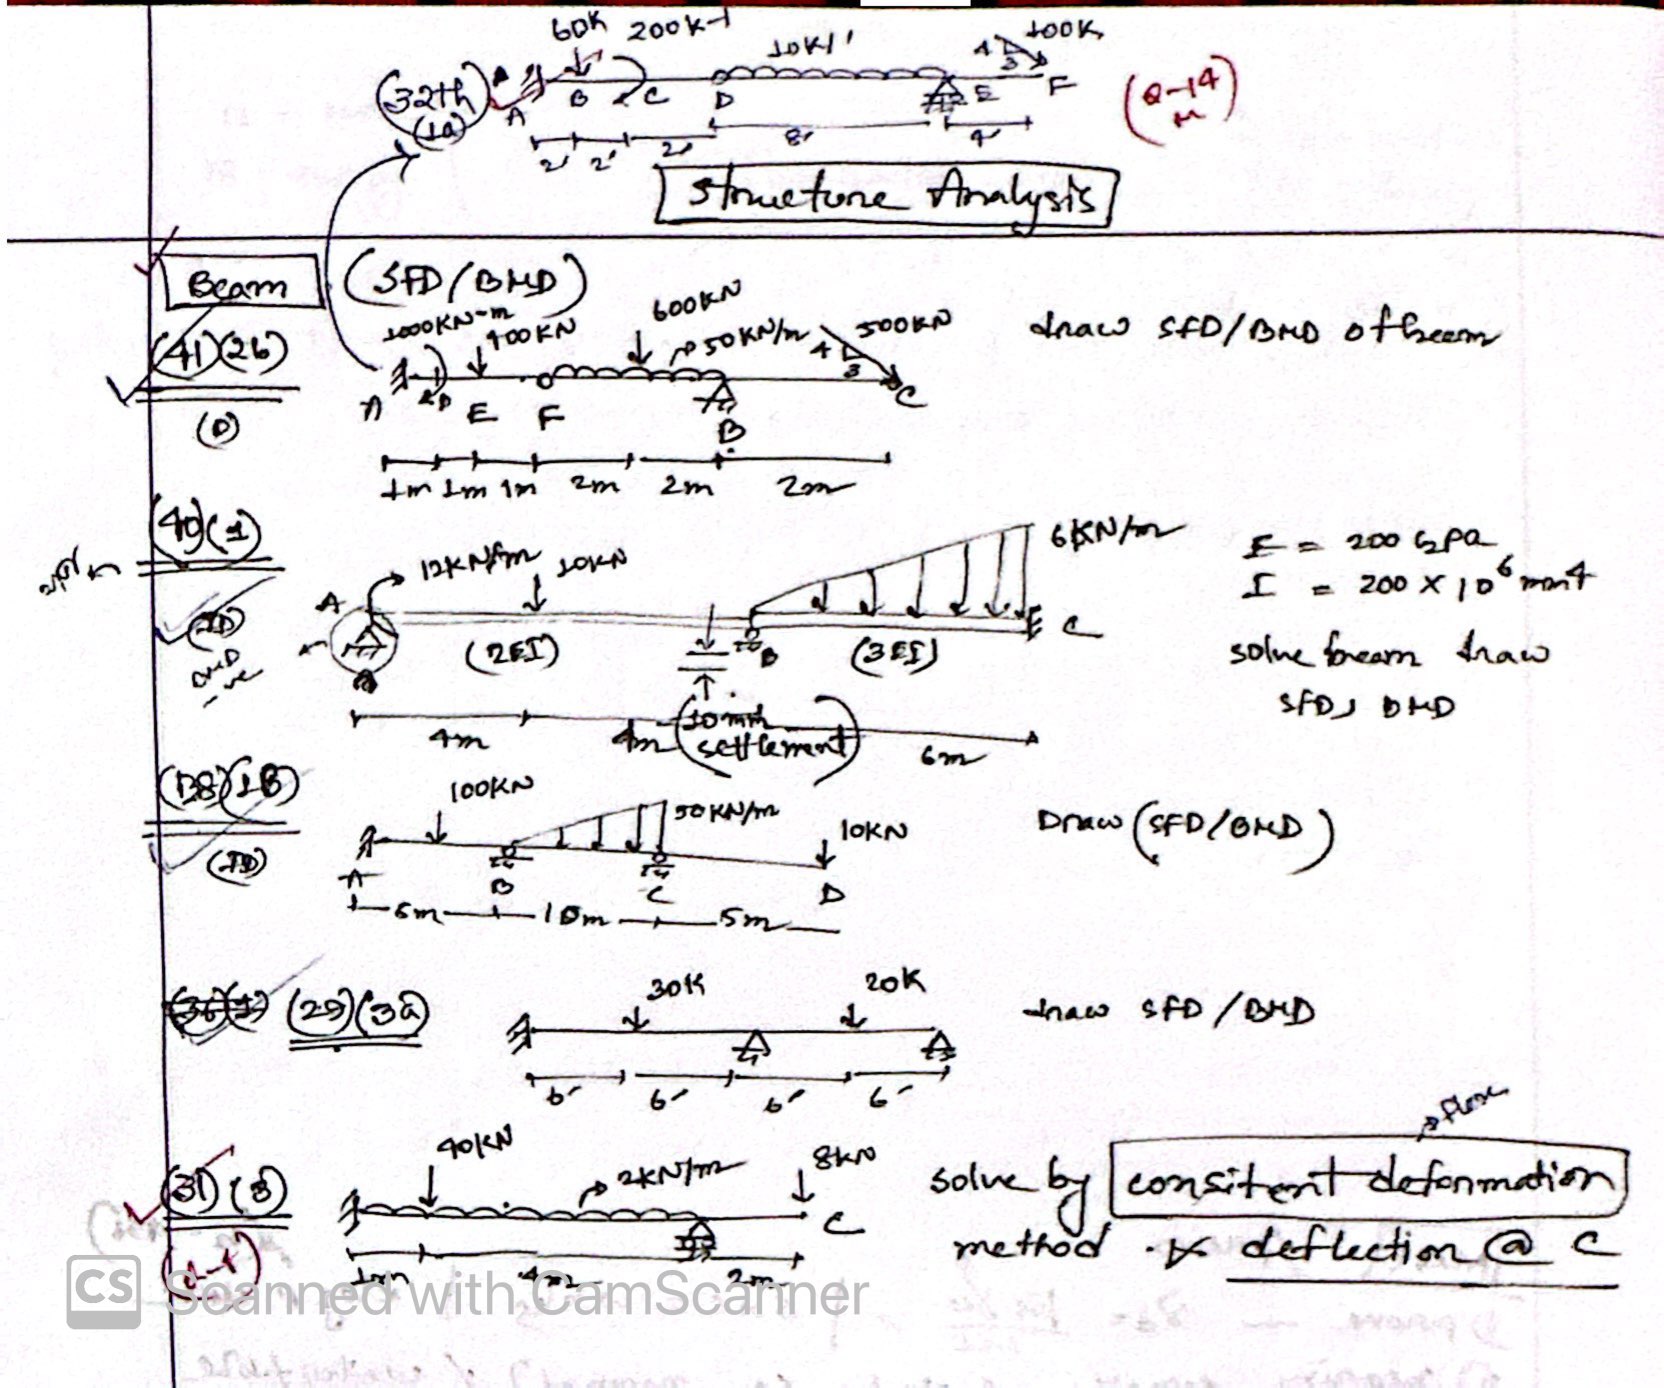 60K 200K-1 10K/' 4 3 100K
(32th) (1a) A B C D E F (Q-14)
2' 2' 2' 8' 4'
Structure Analysis
Beam (SFD/BMD)
(41)(2b) 1000KN-m 400KN 600KN 50KN/m 4 3 500KN draw SFD/BMD of beam
A D E F B C
1m 1m 1m 2m 2m 2m
(40)(1) 12KN/m 10KN 6KN/m E = 200 GPa
I = 200 X 10⁶ mm4
A (2EI) B (3EI) C solve beam draw
SFD, BMD
4m 4m (10mm settlement) 6m
(38)(1B) 100KN 50KN/m 10KN Draw (SFD/BMD)
A B C D
5m 10m 5m
(36)(1) (29)(3a) 30K 20K draw SFD/BMD
6' 6' 6' 6'
(31)(3) 40KN 2KN/m 8KN C solve by consitent deformation
method & deflection @ C
1m 4m 2m
CS Scanned with CamScanner